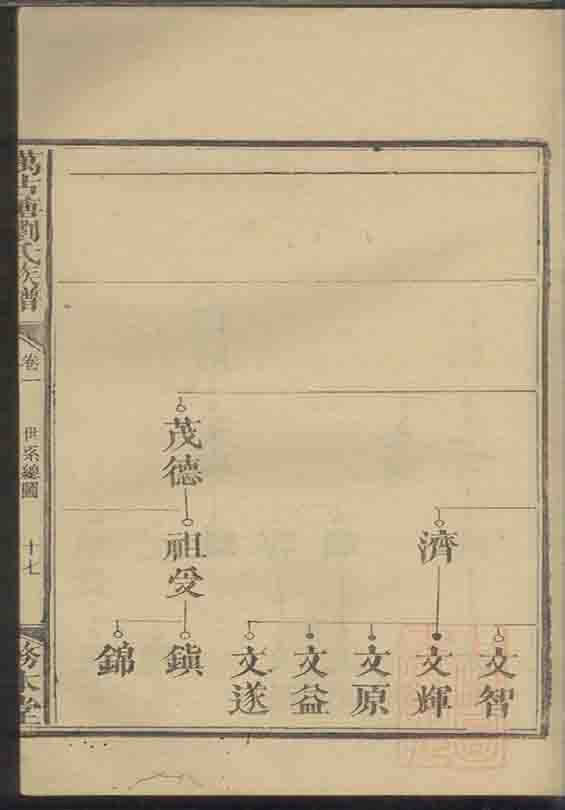 濟
文智
文輝
文原
文益
文遂
茂德
祖受
鎮
錦
萬古塘劉氏族譜
卷一
世系總圖
十七
務本堂